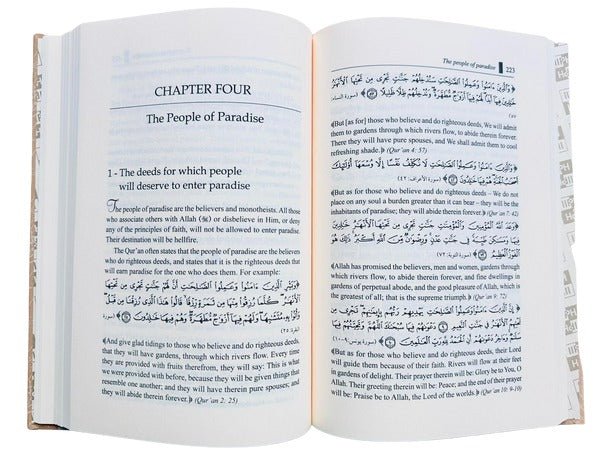 CHAPTER FOUR
The People of Paradise
1 - The deeds for which people
will deserve to enter paradise
The people of paradise are the believers and monotheists. All
those who associate others with Allah (ﷻ) or disbelieve in Him, or deny
any of the principles of faith, will not be allowed to enter paradise.
Their destination will be hellfire.
The Qur'an often states that the people of paradise are the believing
and righteous ones, and states that it is the righteous deeds that
will earn paradise for the one who does them. For example:
﴿وَبَشِّرِ الَّذِينَ ءَامَنُوا وَعَمِلُوا الصَّٰلِحَٰتِ أَنَّ لَهُمْ جَنَّٰتٍ تَجْرِى مِن تَحْتِهَا
الْأَنْهَٰرُ كُلَّمَا رُزِقُوا مِنْهَا مِن ثَمَرَةٍ رِّزْقًا قَالُوا هَٰذَا الَّذِى رُزِقْنَا مِن قَبْلُ
وَأُتُوا بِهِ مُتَشَٰبِهًا وَلَهُمْ فِيهَا أَزْوَٰجٌ مُّطَهَّرَةٌ وَهُمْ فِيهَا خَٰلِدُونَ﴾ (سورة
البقرة: ٢٥)
﴿And give glad tidings to those who believe and do righteous deeds
that they will have gardens, through which rivers flow. Every time
they are provided with fruits therefrom, they will say: This is what
we were provided with before, because they will be given things that
resemble one another; and they will have therein pure spouses; and
they will abide therein forever.﴾ (Qur'an 2: 25)
The people of paradise 223
﴿وَالَّذِينَ ءَامَنُوا وَعَمِلُوا الصَّٰلِحَٰتِ سَنُدْخِلُهُمْ جَنَّٰتٍ تَجْرِى مِن تَحْتِهَا الْأَنْهَٰرُ
خَٰلِدِينَ فِيهَا أَبَدًا لَّهُمْ فِيهَا أَزْوَٰجٌ مُّطَهَّرَةٌ وَنُدْخِلُهُمْ ظِلًّا ظَلِيلًا﴾ (سورة النساء:
٥٧)
﴿But [as for] those who believe and do righteous deeds, We will
admit them to gardens through which rivers flow, to abide therein forever.
There they will have pure spouses, and We shall admit them to cool
refreshing shade.﴾ (Qur'an 4: 57)
﴿وَالَّذِينَ ءَامَنُوا وَعَمِلُوا الصَّٰلِحَٰتِ لَا نُكَلِّفُ نَفْسًا إِلَّا وُسْعَهَا أُولَٰئِكَ
أَصْحَٰبُ الْجَنَّةِ هُمْ فِيهَا خَٰلِدُونَ﴾ (سورة الأعراف: ٤٢)
﴿But as for those who believe and do righteous deeds – We do not
place on any soul a burden greater than it can bear – they will be the
inhabitants of paradise; they will abide therein forever.﴾ (Qur'an 7: 42)
﴿وَعَدَ اللَّهُ الْمُؤْمِنِينَ وَالْمُؤْمِنَٰتِ جَنَّٰتٍ تَجْرِى مِن تَحْتِهَا الْأَنْهَٰرُ خَٰلِدِينَ
فِيهَا وَمَسَٰكِنَ طَيِّبَةً فِى جَنَّٰتِ عَدْنٍ وَرِضْوَٰنٌ مِّنَ اللَّهِ أَكْبَرُ ذَٰلِكَ هُوَ
الْفَوْزُ الْعَظِيمُ﴾ (سورة التوبة: ٧٢)
﴿Allah has promised the believers, men and women, gardens through
which rivers flow, to abide therein forever, and fine dwellings in
gardens of perpetual abode, and the good pleasure of Allah, which is
the greatest of all; that is the supreme triumph.﴾ (Qur'an 9: 72)
﴿إِنَّ الَّذِينَ ءَامَنُوا وَعَمِلُوا الصَّٰلِحَٰتِ يَهْدِيهِمْ رَبُّهُم بِإِيمَٰنِهِمْ تَجْرِى مِن
تَحْتِهِمُ الْأَنْهَٰرُ فِى جَنَّٰتِ النَّعِيمِ دَعْوَىٰهُمْ فِيهَا سُبْحَٰنَكَ اللَّهُمَّ وَتَحِيَّتُهُمْ فِيهَا
سَلَٰمٌ وَءَاخِرُ دَعْوَىٰهُمْ أَنِ الْحَمْدُ لِلَّهِ رَبِّ الْعَٰلَمِينَ﴾ (سورة يونس: ٩-١٠)
﴿But as for those who believe and do righteous deeds, their Lord
will guide them because of their faith. Rivers will flow at their feet
in gardens of delight. Their prayer therein will be: Glory be to You, O
Allah. Their greeting therein will be: Peace; and the end of their prayer
will be: Praise be to Allah, the Lord of the worlds.﴾ (Qur'an 10: 9-10)